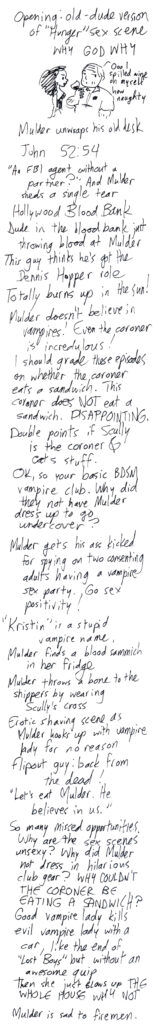 Opening: old-dude version
of "Hunger" sex scene
WHY GOD WHY
Ooo I
spilled wine
on myself
how
naughty
Mulder unwraps his old desk
John 52:54
"An FBI agent without a
partner?" And Mulder
sheds a single tear
Hollywood Blood Bank
Dude in the blood bank just
throwing blood at Mulder
This guy thinks he's got the
Dennis Hopper role
Totally burns up in the sun!
Mulder doesn't believe in
vampires! Even the coroner
is incredulous!
I should grade these episodes
on whether the coroner
eats a sandwich. This
coroner does NOT eat a
sandwich. DISAPPOINTING.
Double points if Scully
is the coroner
stuff.
OK, so your basic BDSM
vampire club. Why did
they not have Mulder
dress up to go
undercover?
Mulder gets his ass kicked
for spying on two consenting
adults having a vampire
sex party. Go sex
positivity!
"Kristin" is a stupid
vampire name.
Mulder finds a blood sammich
in her fridge
Mulder throws a bone to the
shippers by wearing
Scully's cross
Erotic shaving scene as
Mulder hooks up with vampire
lady for no reason
Flipout guy: back from
the dead!
"Let's eat Mulder. He
believes in us."
So many missed opportunities.
Why are the sex scenes
unsexy? Why did Mulder
not dress in hilarious
club gear? WHY COULDN'T
THE CORONER BE
EATING A SANDWICH?
Good vampire lady kills
evil vampire lady with a
car, like the end of
"Lost Boys" but without an
awesome quip
Then she just blows up THE
WHOLE HOUSE WHY NOT
Mulder is sad to firemen.